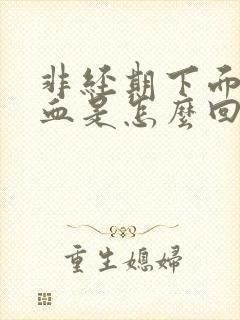 非经期下面
血是怎麼回
重生媳婦